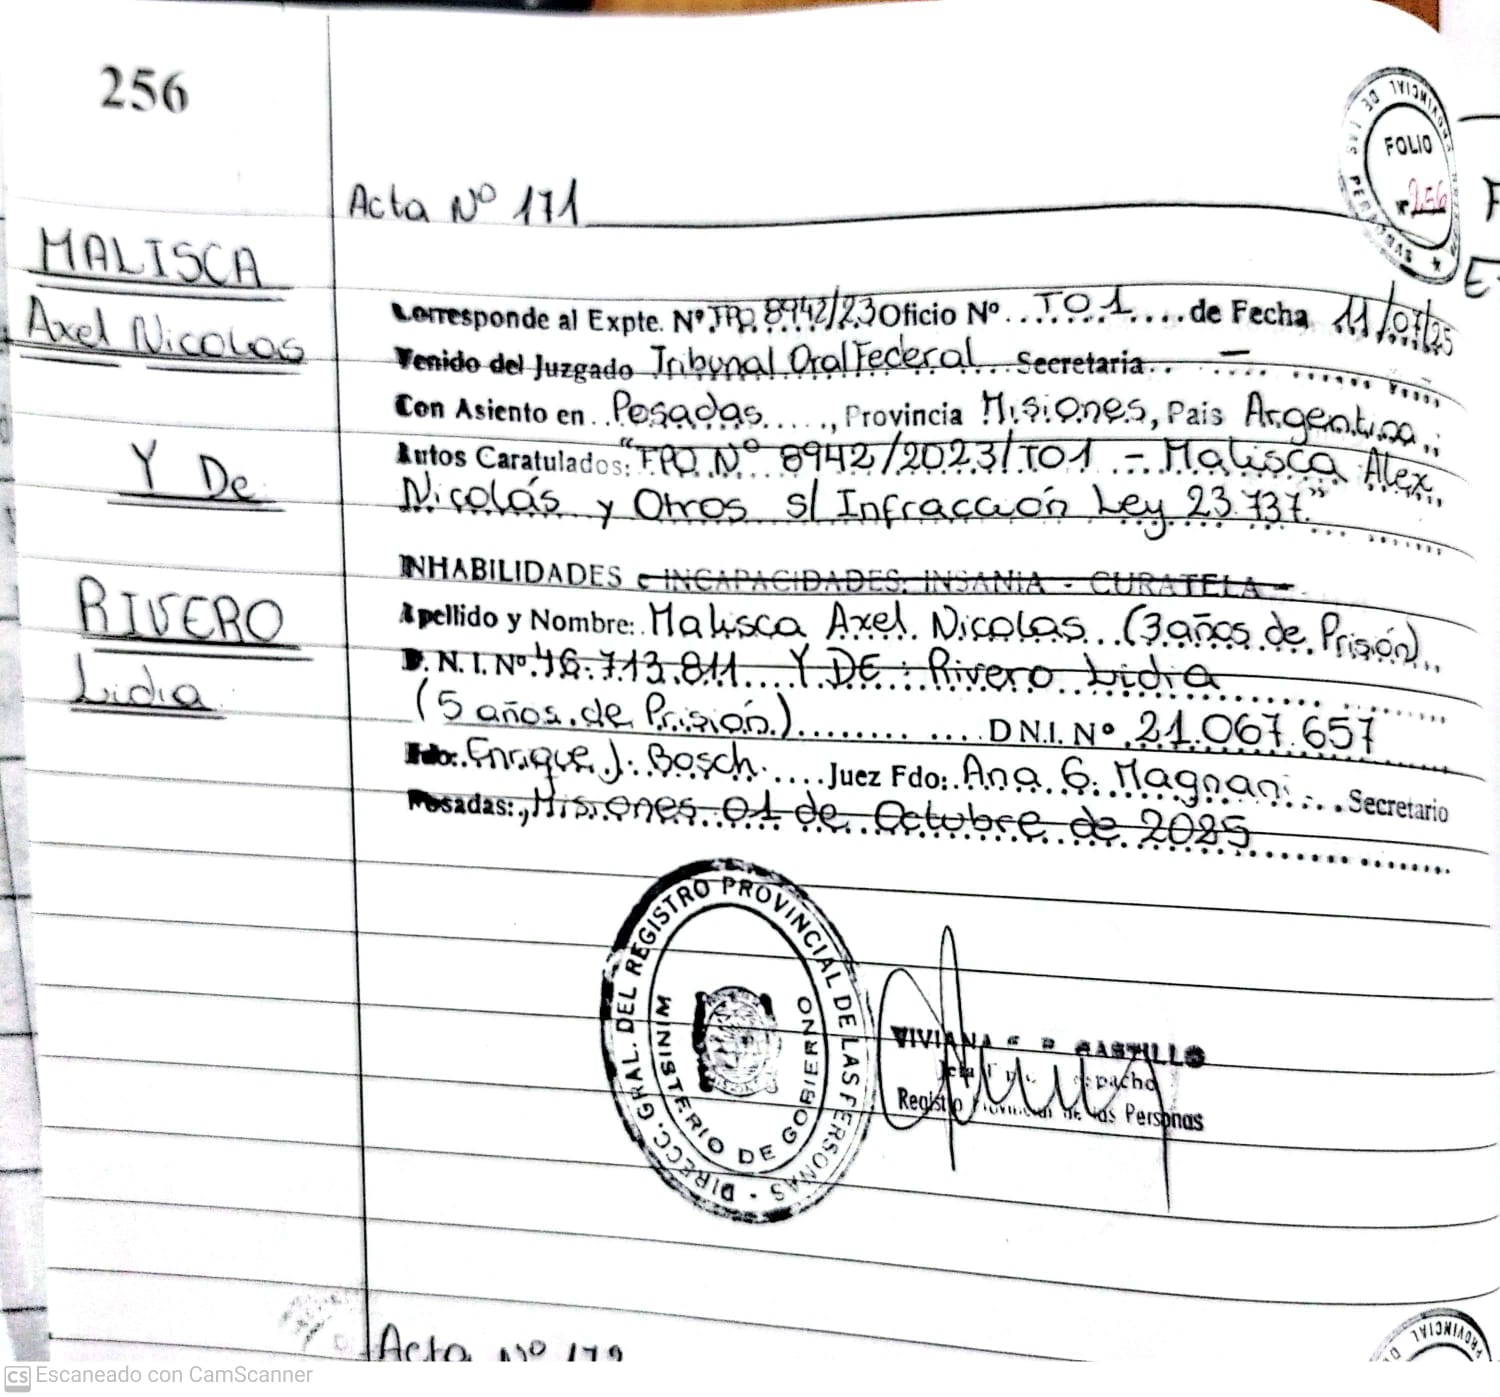 256
FOLIO
Nº 256
Acta Nº 171
MALISCA
Axel Nicolas
Y De
RIVERO
Lidia
Corresponde al Expte. Nº FPO 8942/23 Oficio Nº...TO1....de Fecha 11/07/25
Venido del Juzgado Tribunal Oral Federal Secretaria.. —
Con Asiento en..Posadas....., Provincia Misiones, Pais Argentina..
Autos Caratulados: "FPO Nº 8942/2023/TO1 - Malisca Alex
Nicolás y Otros s/ Infracción Ley 23.737"
INHABILIDADES e INCAPACIDADES: INSANIA - CURATELA -
Apellido y Nombre: Malisca Axel Nicolas (3 años de Prisión)
D. N. I. Nº 46.713.811 Y DE: Rivero Lidia
(5 años de Prisión) D N.I. Nº 21.067.657
Fdo: Enrique J. Bosch Juez Fdo: Ana G. Magnani Secretario
Posadas:, Misiones 01 de Octubre de 2025
DIRECC. GRAL. DEL REGISTRO PROVINCIAL DE LAS PERSONAS
MINISTERIO DE GOBIERNO
VIVIANA CASTILLO
Registro Provincial de las Personas
Acta Nº 172
PROVINCIAL
CS Escaneado con CamScanner